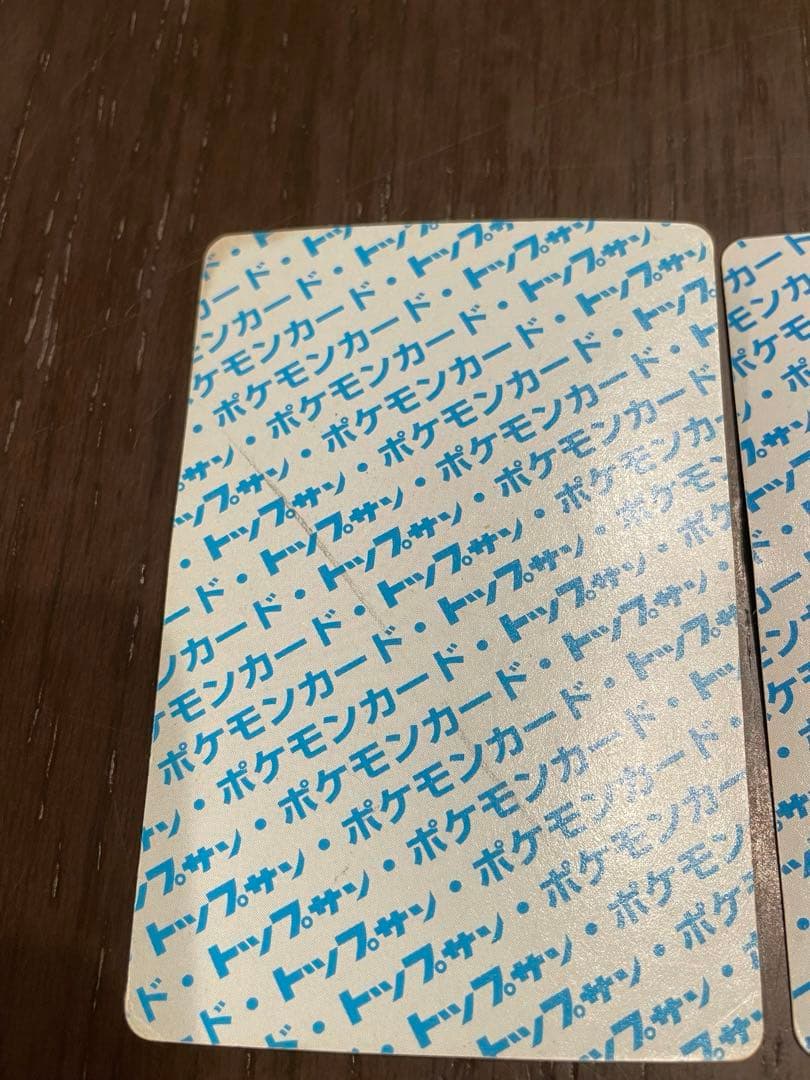 カード・ト
ンカード・トップサン
ケモンカード・トップサン・
・ポケモンカード・トップサン
サン・ポケモンカード・トップ
ップサン・ポケモンカード・ト
・トップサン・ポケモンカード・
ード・トップサン・ポケモンカード
ンカード・トップサン・ポケモンカ
ケモンカード・トップサン・ポケモン
ポケモンカード・トップサン・ポケ
ン・ポケモンカード・トップサン・
ップサン・ポケモンカード・トップサン
トップサン・ポケモンカード・トッ
ド・トップサン・ポケモンカード・
ド・トップサン・ポケモンカー
トップサン・ポケモン
トップサン・ポケ
トップサン・
カード
モンカード
ポケモ